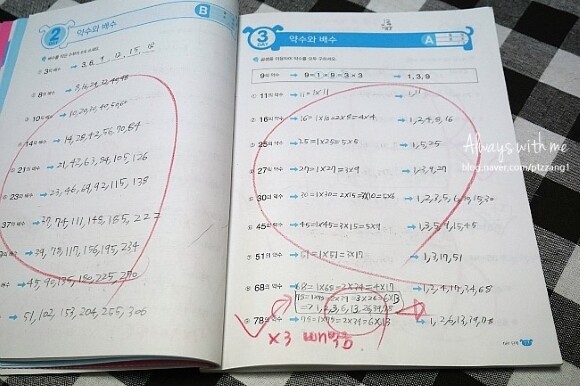 2
DAY
약수와 배수
B
3의 배수 → 3, 6, 9, 12, 15, 18
8의 배수 → 8, 16, 24, 32, 40, 48
10의 배수 → 10, 20, 30, 40, 50, 60
14의 배수 → 14, 28, 42, 56, 70, 84
21의 배수 → 21, 42, 63, 84, 105, 126
23의 배수 → 23, 46, 69, 92, 115, 138
37의 배수 → 37, 74, 111, 148, 185, 222
의 배수 → 39, 78, 117, 156, 195, 234
의 배수 → 45, 90, 135, 180, 225, 270
→ 51, 102, 153, 204, 255, 306
3
DAY
약수와 배수
A
9의 약수 → 9=1×9=3×3 → 1, 3, 9
① 11의 약수 → 11=1×11 → 1, 11
② 16의 약수 → 16=1×16=2×8=4×4 → 1, 2, 4, 8, 16
③ 25의 약수 → 25=1×25=5×5 → 1, 5, 25
④ 27의 약수 → 27=1×27=3×9 → 1, 3, 9, 27
⑤ 30의 약수 → 30=1×30=2×15=3×10=5×6 → 1, 2, 3, 5, 6, 10, 15, 30
⑥ 45의 약수 → 45=1×45=3×15=5×9 → 1, 3, 5, 9, 15, 45
⑦ 51의 약수 → 51=1×51=3×17 → 1, 3, 17, 51
⑧ 68의 약수 → 68=1×68=2×34=4×17 → 1, 2, 4, 17, 34, 68
⑨ 78의 약수
Always with me
blog.naver.com/ptzzang1